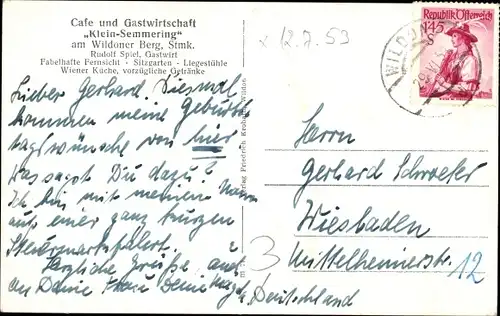 Cafe und Gastwirtschaft
„Klein-Semmering"
am Wildoner Berg, Stmk.
Rudolf Spiel, Gastwirt
Fabelhafte Fernsicht - Sitzgarten - Liegestühle
Wiener Küche, vorzügliche Getränke
x 12.7.53
Republik Österreich
1.45
S
WILDON
Lieber Gerhard. Diesmal
kommen meine Geburts
tagswünsche von hier
Was sagst Du dazu?
Ich bin mit meinem Mann
auf einer ganz kurzen
Steiermarkfahrt.
Herzliche Grüße auch
an Deine Frau Deine
Verlag Friedrich
Herrn
Gerhard Schwefer
Wiesbaden
Mittelheimerstr. 12
3
Deutschland